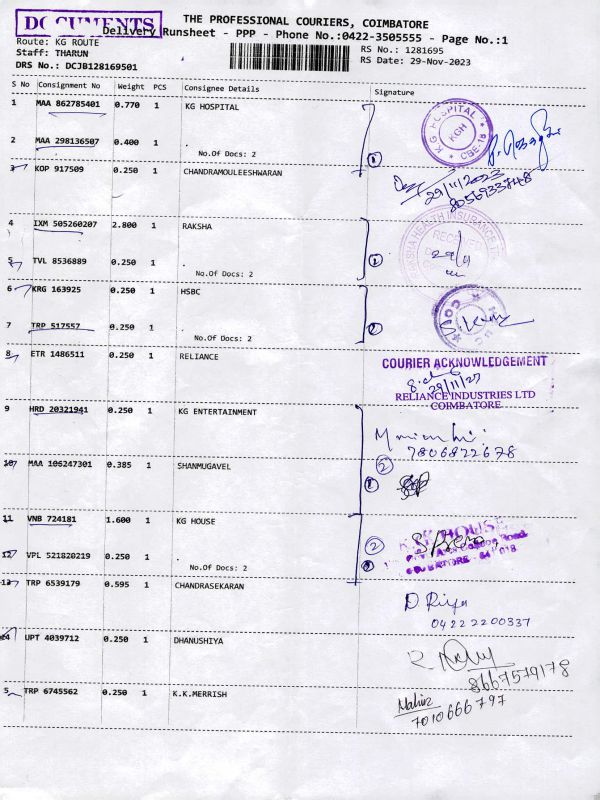 DOCUMENTS
THE PROFESSIONAL COURIERS, COIMBATORE
Delivery Runsheet - PPP - Phone No.:0422-3505555 - Page No.:1
Route: KG ROUTE
RS No.: 1281695
Staff: THARUN
RS Date: 29-Nov-2023
DRS No.: DCJB128169501
S No Consignment No Weight PCS Consignee Details Signature
1 MAA 862785401 0.770 1 KG HOSPITAL
KG HOSPITAL KGH CBE-18
2 MAA 298136507 0.400 1 .
No.Of Docs: 2
3 KOP 917509 0.250 1 CHANDRAMOULEESHWARAN
29/11/2023
8056933748
4 IXM 505260207 2.800 1 RAKSHA
RAKSHA HEALTH INSURANCE
RECEIVED
29/11
5 TVL 8536889 0.250 1 .
No.Of Docs: 2
6 KRG 163925 0.250 1 HSBC
7 TRP 517557 0.250 1 .
No.Of Docs: 2
8 ETR 1486511 0.250 1 RELIANCE
COURIER ACKNOWLEDGEMENT
29/11/23
RELIANCE INDUSTRIES LTD
COIMBATORE
9 HRD 20321941 0.250 1 KG ENTERTAINMENT
7806822678
2
10 MAA 105247301 0.385 1 SHANMUGAVEL
11 VNB 724181 1.600 1 KG HOUSE
HOUSE
2
12 VPL 521820219 0.250 1 .
No.Of Docs: 2
13 TRP 6539179 0.595 1 CHANDRASEKARAN
D Riya
04222200337
14 UPT 4039712 0.250 1 DHANUSHIYA
8667579178
5 TRP 6745562 0.250 1 K.K.MERRISH
7010666797